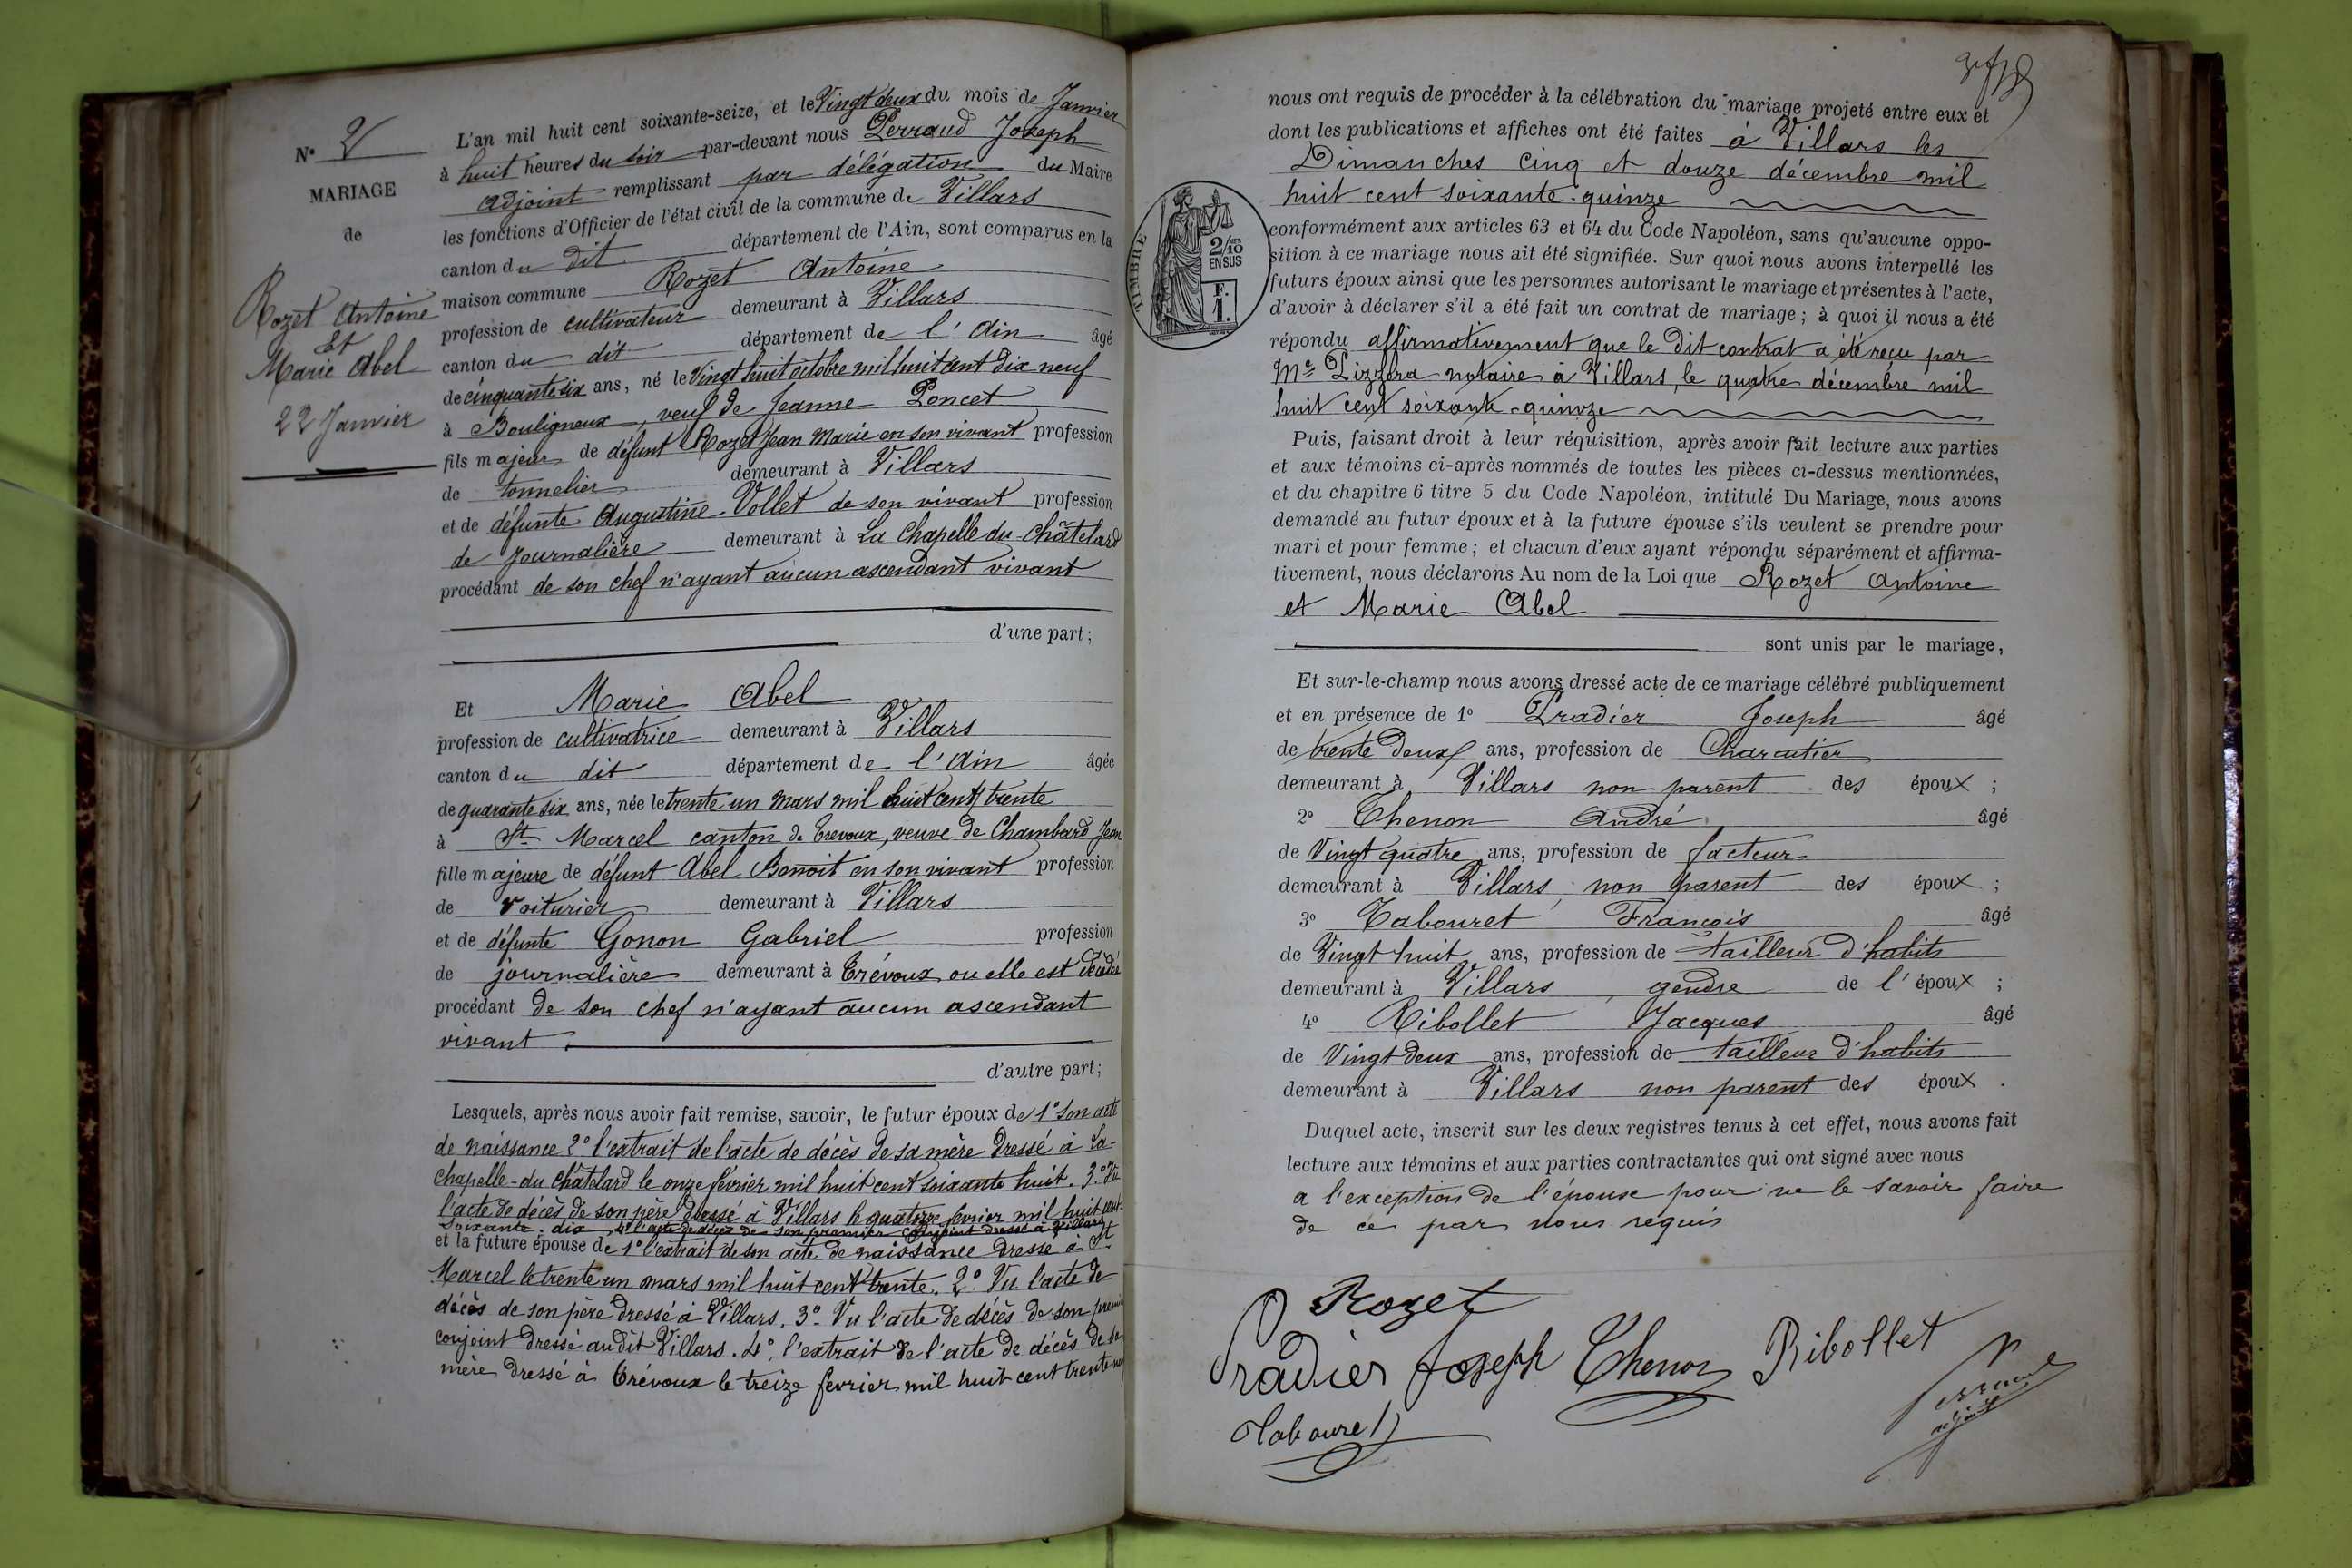 N° 2
MARIAGE
de
Rozet Antoine
Et
Marie Abel
22 Janvier
L'an mil huit cent soixante-seize, et le Vingt deux du mois de Janvier
à huit heures du soir par-devant nous Perraud Joseph
adjoint remplissant par délégation du Maire
les fonctions d'Officier de l'état civil de la commune de Villars
canton du dit département de l'Ain, sont comparus en la
maison commune Rozet Antoine
profession de cultivateur demeurant à Villars
canton du dit département de l'Ain âgé
de cinquante six ans, né le Vingt huit octobre mil huit cent dix neuf
à Bouligneux, veuf de Jeanne Poncet
fils majeur de défunt Rozet Jean Marie en son vivant profession
de tonnelier demeurant à Villars
et de défunte Augustine Vollet de son vivant profession
de Journalière demeurant à La Chapelle-du-Châtelard
procédant de son chef n'ayant aucun ascendant vivant
d'une part;
Et Marie Abel
profession de cultivatrice demeurant à Villars
canton du dit département de l'Ain âgée
de quarante six ans, née le trente un mars mil huit cent trente
à St Marcel canton de Trevoux, veuve de Chambard Jean
fille majeure de défunt Abel Benoit en son vivant profession
de voiturier demeurant à Villars
et de défunte Gonon Gabriel profession
de journalière demeurant à Trévoux ou elle est décédée
procédant de son chef n'ayant aucun ascendant
vivant
d'autre part;
Lesquels, après nous avoir fait remise, savoir, le futur époux de 1° son acte
de naissance 2° l'extrait de l'acte de décès de sa mère dressé à La-
chapelle-du Châtelard le onze février mil huit cent soixante huit. 3° Vu
l'acte de décès de son père dressé à Villars le quatorze fevrier mil huit cent
soixante-dix, 4° l'acte de décès de son premier conjoint dressé à Villars
et la future épouse de 1° l'extrait de son acte de naissance dressé à St
Marcel le trente un mars mil huit cent trente. 2° Vu l'acte de
décès de son père dressé à Villars. 3° Vu l'acte de décès de son premier
conjoint dressé au dit Villars. 4° l'extrait de l'acte de décès de sa
mère dressé à Trévoux le treize fevrier mil huit cent trente
nous ont requis de procéder à la célébration du mariage projeté entre eux et
dont les publications et affiches ont été faites à Villars les
Dimanches cinq et douze décembre mil
huit cent soixante-quinze
TIMBRE
2/10 EN SUS
F. 1.
conformément aux articles 63 et 64 du Code Napoléon, sans qu'aucune oppo-
sition à ce mariage nous ait été signifiée. Sur quoi nous avons interpellé les
futurs époux ainsi que les personnes autorisant le mariage et présentes à l'acte,
d'avoir à déclarer s'il a été fait un contrat de mariage; à quoi il nous a été
répondu affirmativement que le dit contrat a été reçu par
Me Pizzera notaire à Villars, le quatre décembre mil
huit cent soixante-quinze
Puis, faisant droit à leur réquisition, après avoir fait lecture aux parties
et aux témoins ci-après nommés de toutes les pièces ci-dessus mentionnées,
et du chapitre 6 titre 5 du Code Napoléon, intitulé Du Mariage, nous avons
demandé au futur époux et à la future épouse s'ils veulent se prendre pour
mari et pour femme; et chacun d'eux ayant répondu séparément et affirma-
tivement, nous déclarons Au nom de la Loi que Rozet Antoine
et Marie Abel
sont unis par le mariage,
Et sur-le-champ nous avons dressé acte de ce mariage célébré publiquement
et en présence de 1° Pradier Joseph âgé
de trente deux ans, profession de Charcutier
demeurant à Villars non parent des époux;
2° Thenon André âgé
de Vingt quatre ans, profession de facteur
demeurant à Villars, non parent des époux;
3° Tabouret François âgé
de Vingt huit ans, profession de tailleur d'habits
demeurant à Villars, gendre de l'époux;
4° Ribollet Jacques âgé
de Vingt deux ans, profession de tailleur d'habits
demeurant à Villars non parent des époux.
Duquel acte, inscrit sur les deux registres tenus à cet effet, nous avons fait
lecture aux témoins et aux parties contractantes qui ont signé avec nous
a l'exception de l'épouse pour ne le savoir faire
de ce par nous requis
Rozet
Pradier Joseph Thenon Ribollet
Tabouret
Perraud
adjoint